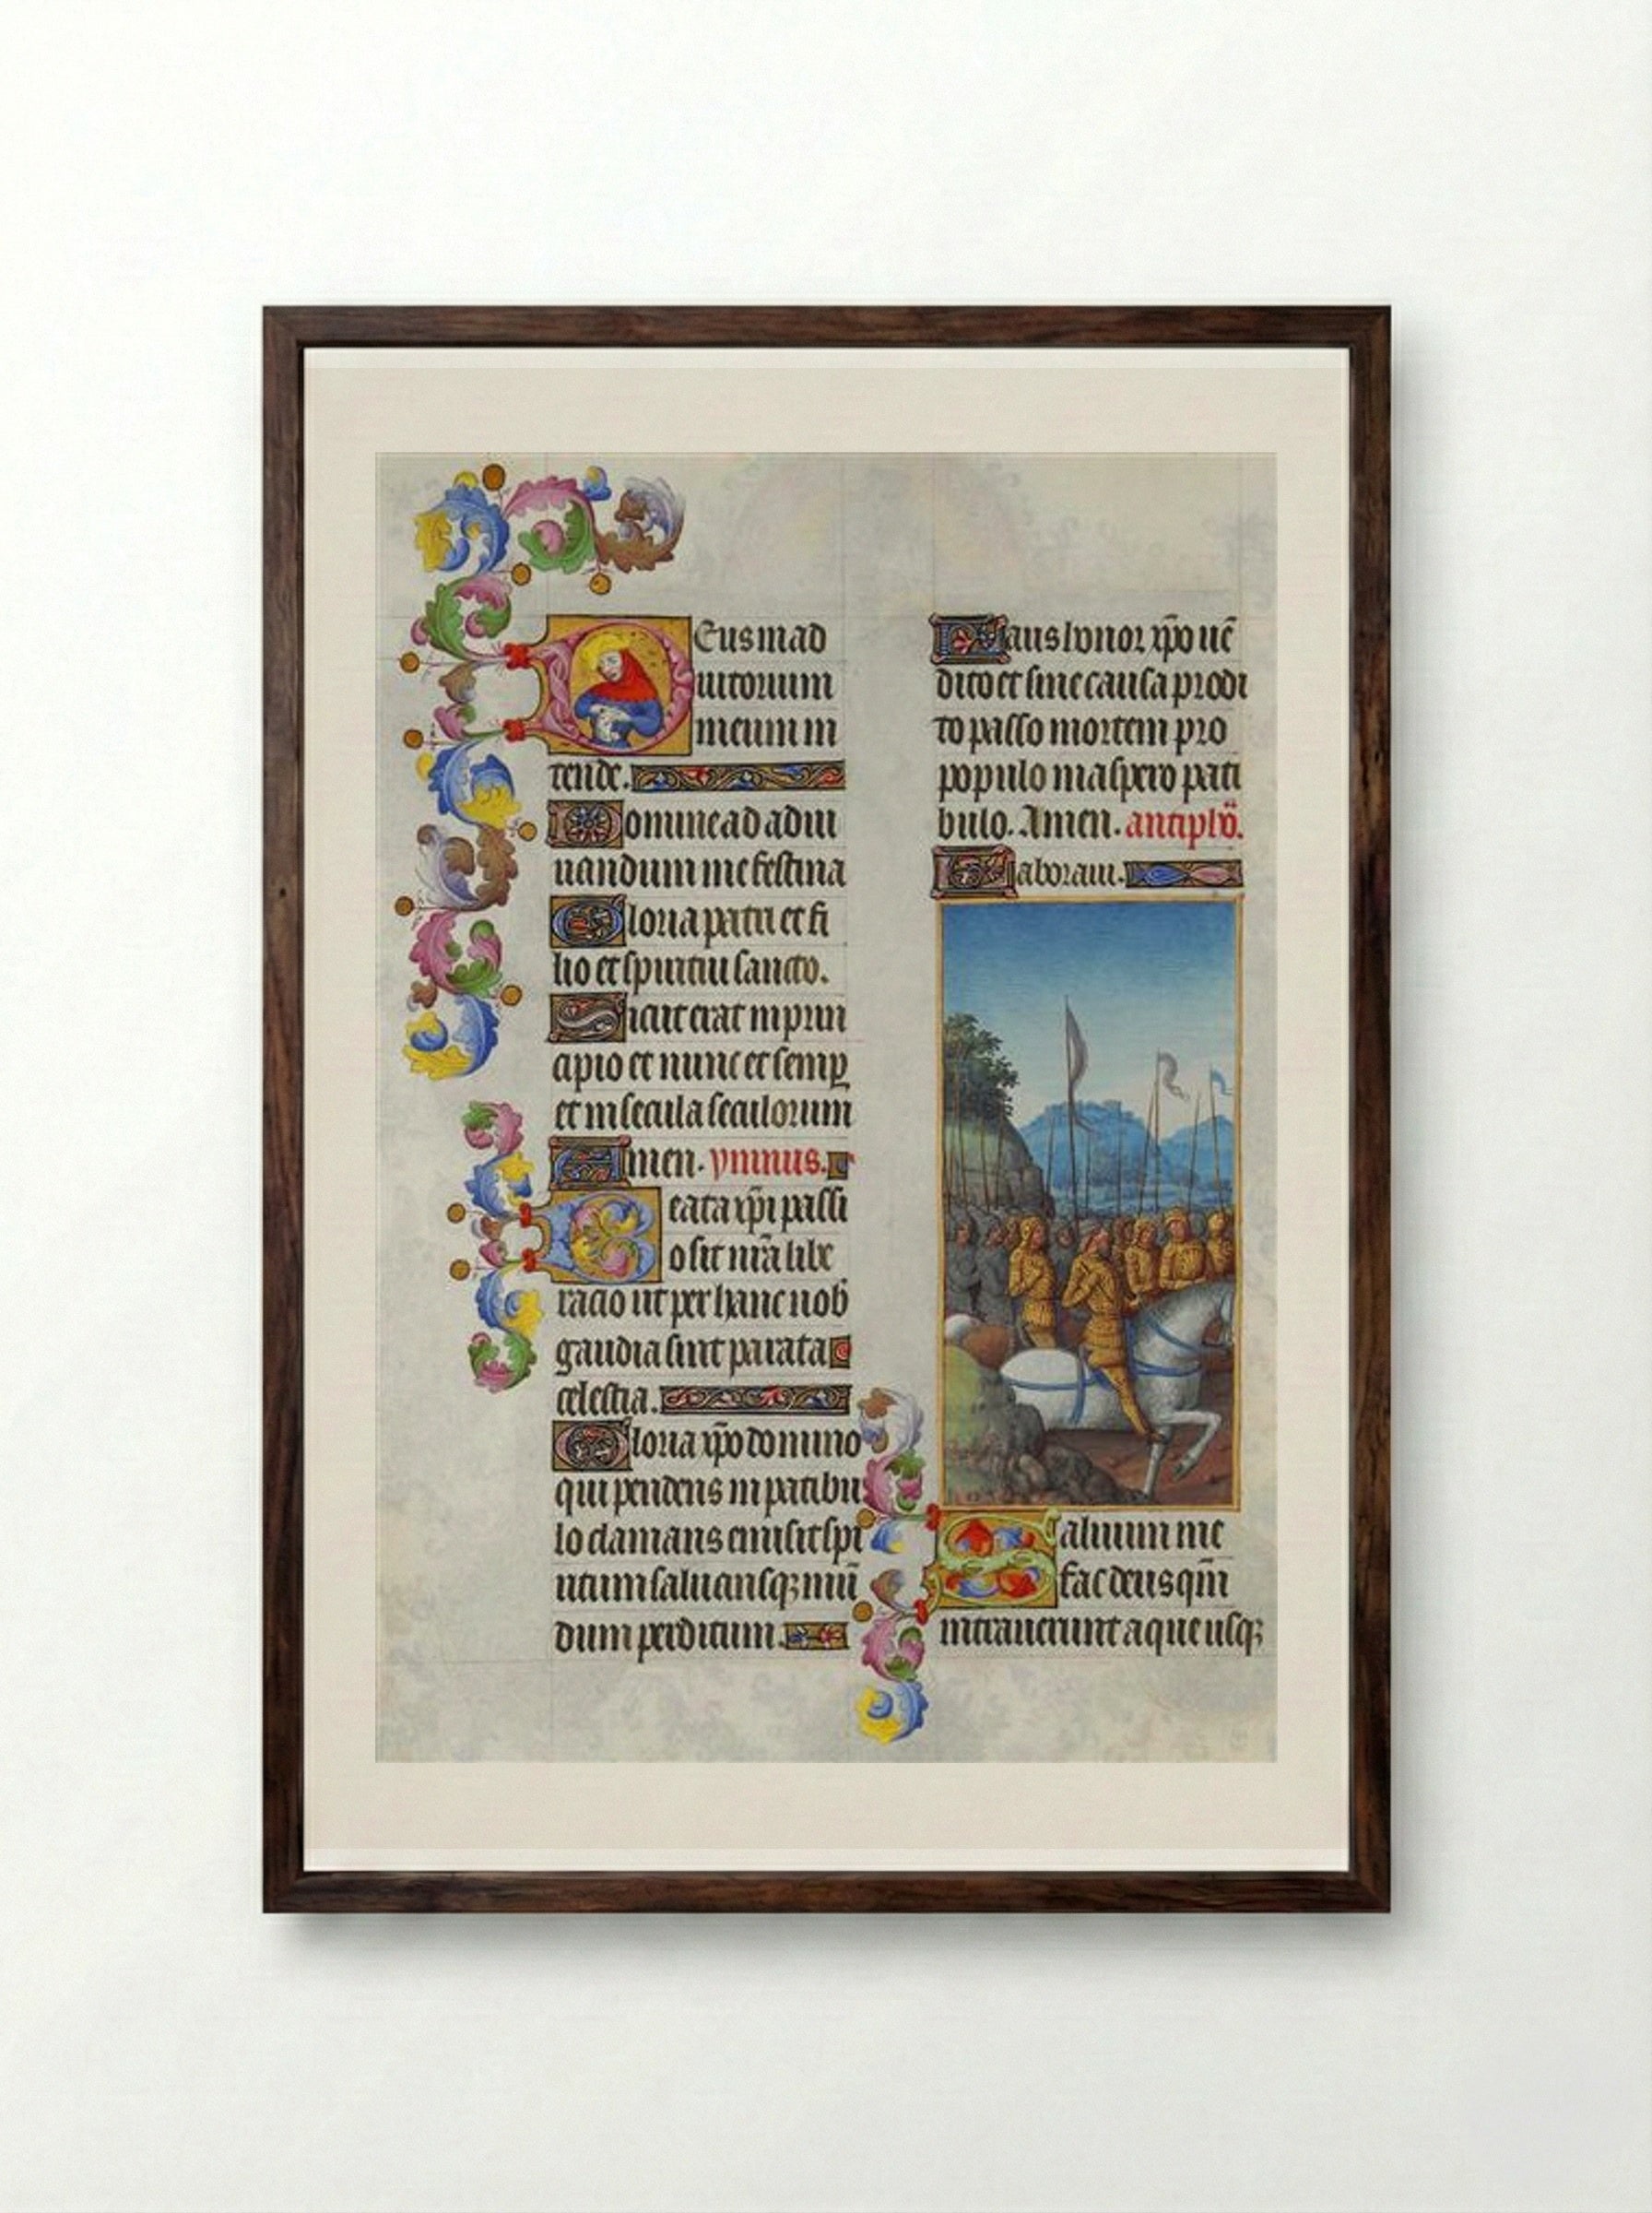 Deus in ad
iutorium
meum in
tende.
Domine ad adiu
uandum me festina
Gloria patri et fi
lio et spiritui sancto.
Sicut erat in prin
cipio et nunc et semp
et in secula seculorum
Amen. ymnus.
Beata xp̄i passi
o sit nr̄a libe
racio ut per hanc nob̄
gaudia sint parata
celestia.
Gloria xp̄o domino
qui pendens in patibu
lo clamans emisit spi
ritum saluansq3 mū
dum perditum.
Laus honor xp̄o uē
dito et sine causa prodi
to passo mortem pro
populo in aspero pati
bulo. Amen. antiphō.
Laboraui.
Saluum me
fac deus qm̄
intrauerunt aque usq3